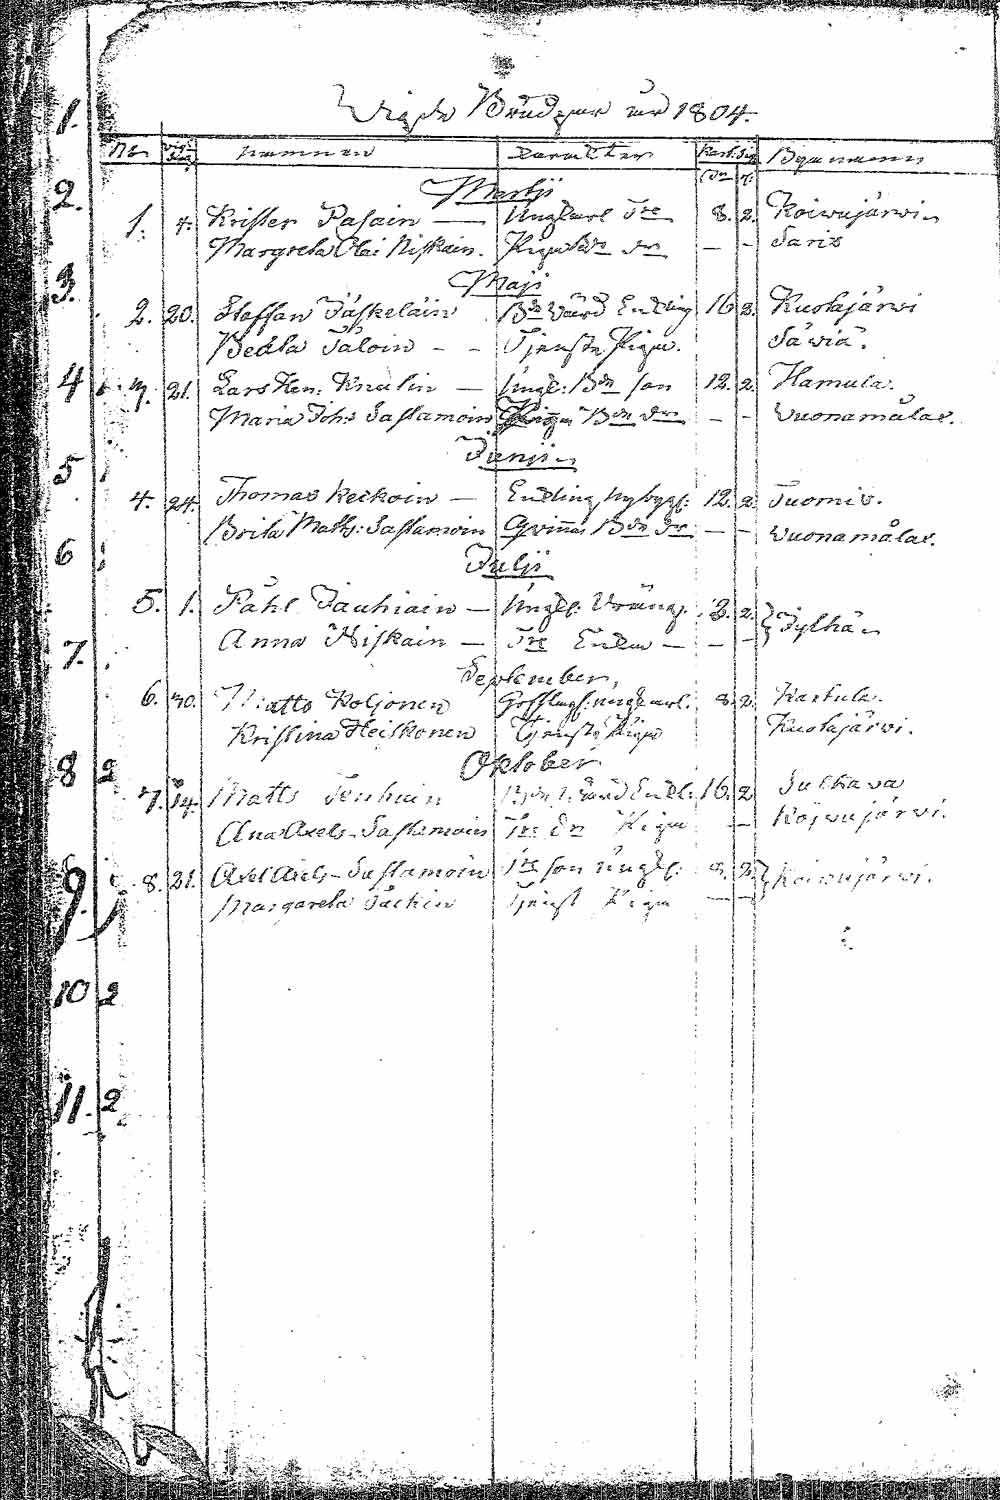 1.
Wigde Brudpar år 1804.
No namnen Caracter Byanamn
2.
Martji
1. 4. Krister Pasain — Ungkarl 8. 2. Koiwujärwi
Margreta Olai Niskain. — - Saris
3.
Maji
2. 20. Staffan Jäskeläin Bde Värd Enkling 16 2. Kuotajärwi
Beata Taloin - - Tjenste Pigan. Säwiä.
4
3. 21. Lars Hen: Knulin — Ungk: Bde son 12. 2. Hamula.
Maria Joh:s Sastamoin Pigan Bde dr — - Wuonamålax.
Junji
5
4. 24. Thomas Keckoin — Enkling Nybygg: 12. 2. Tuomis.
Brita Matts: Sastamoin Qvinnan Bde dr — - Wuonamålax.
6
Julji
5. 1. Påhl Jauhiain — Ungk: 8. 2. Jylhä
Anna Niskain — Enka — — -
7.
September.
6. 30. Matts Koljonen ungkarl. 8. 2. Kartula.
Kristina Heiskonen Tjenste Piga Kuotajärwi.
8 2
Oktober
7. 14. Matts Tenhuin Bde Värd Enkl: 16. 2 Sulkava
Ana Axels- Sastamoin Piga — Koiwujärwi.
8. 21. Axel Axels- Sastamoin son ungk: 8. 2. Koiwujärwi.
Margareta Jäckin Tjenst Piga — —
9.
10 2
11. 2